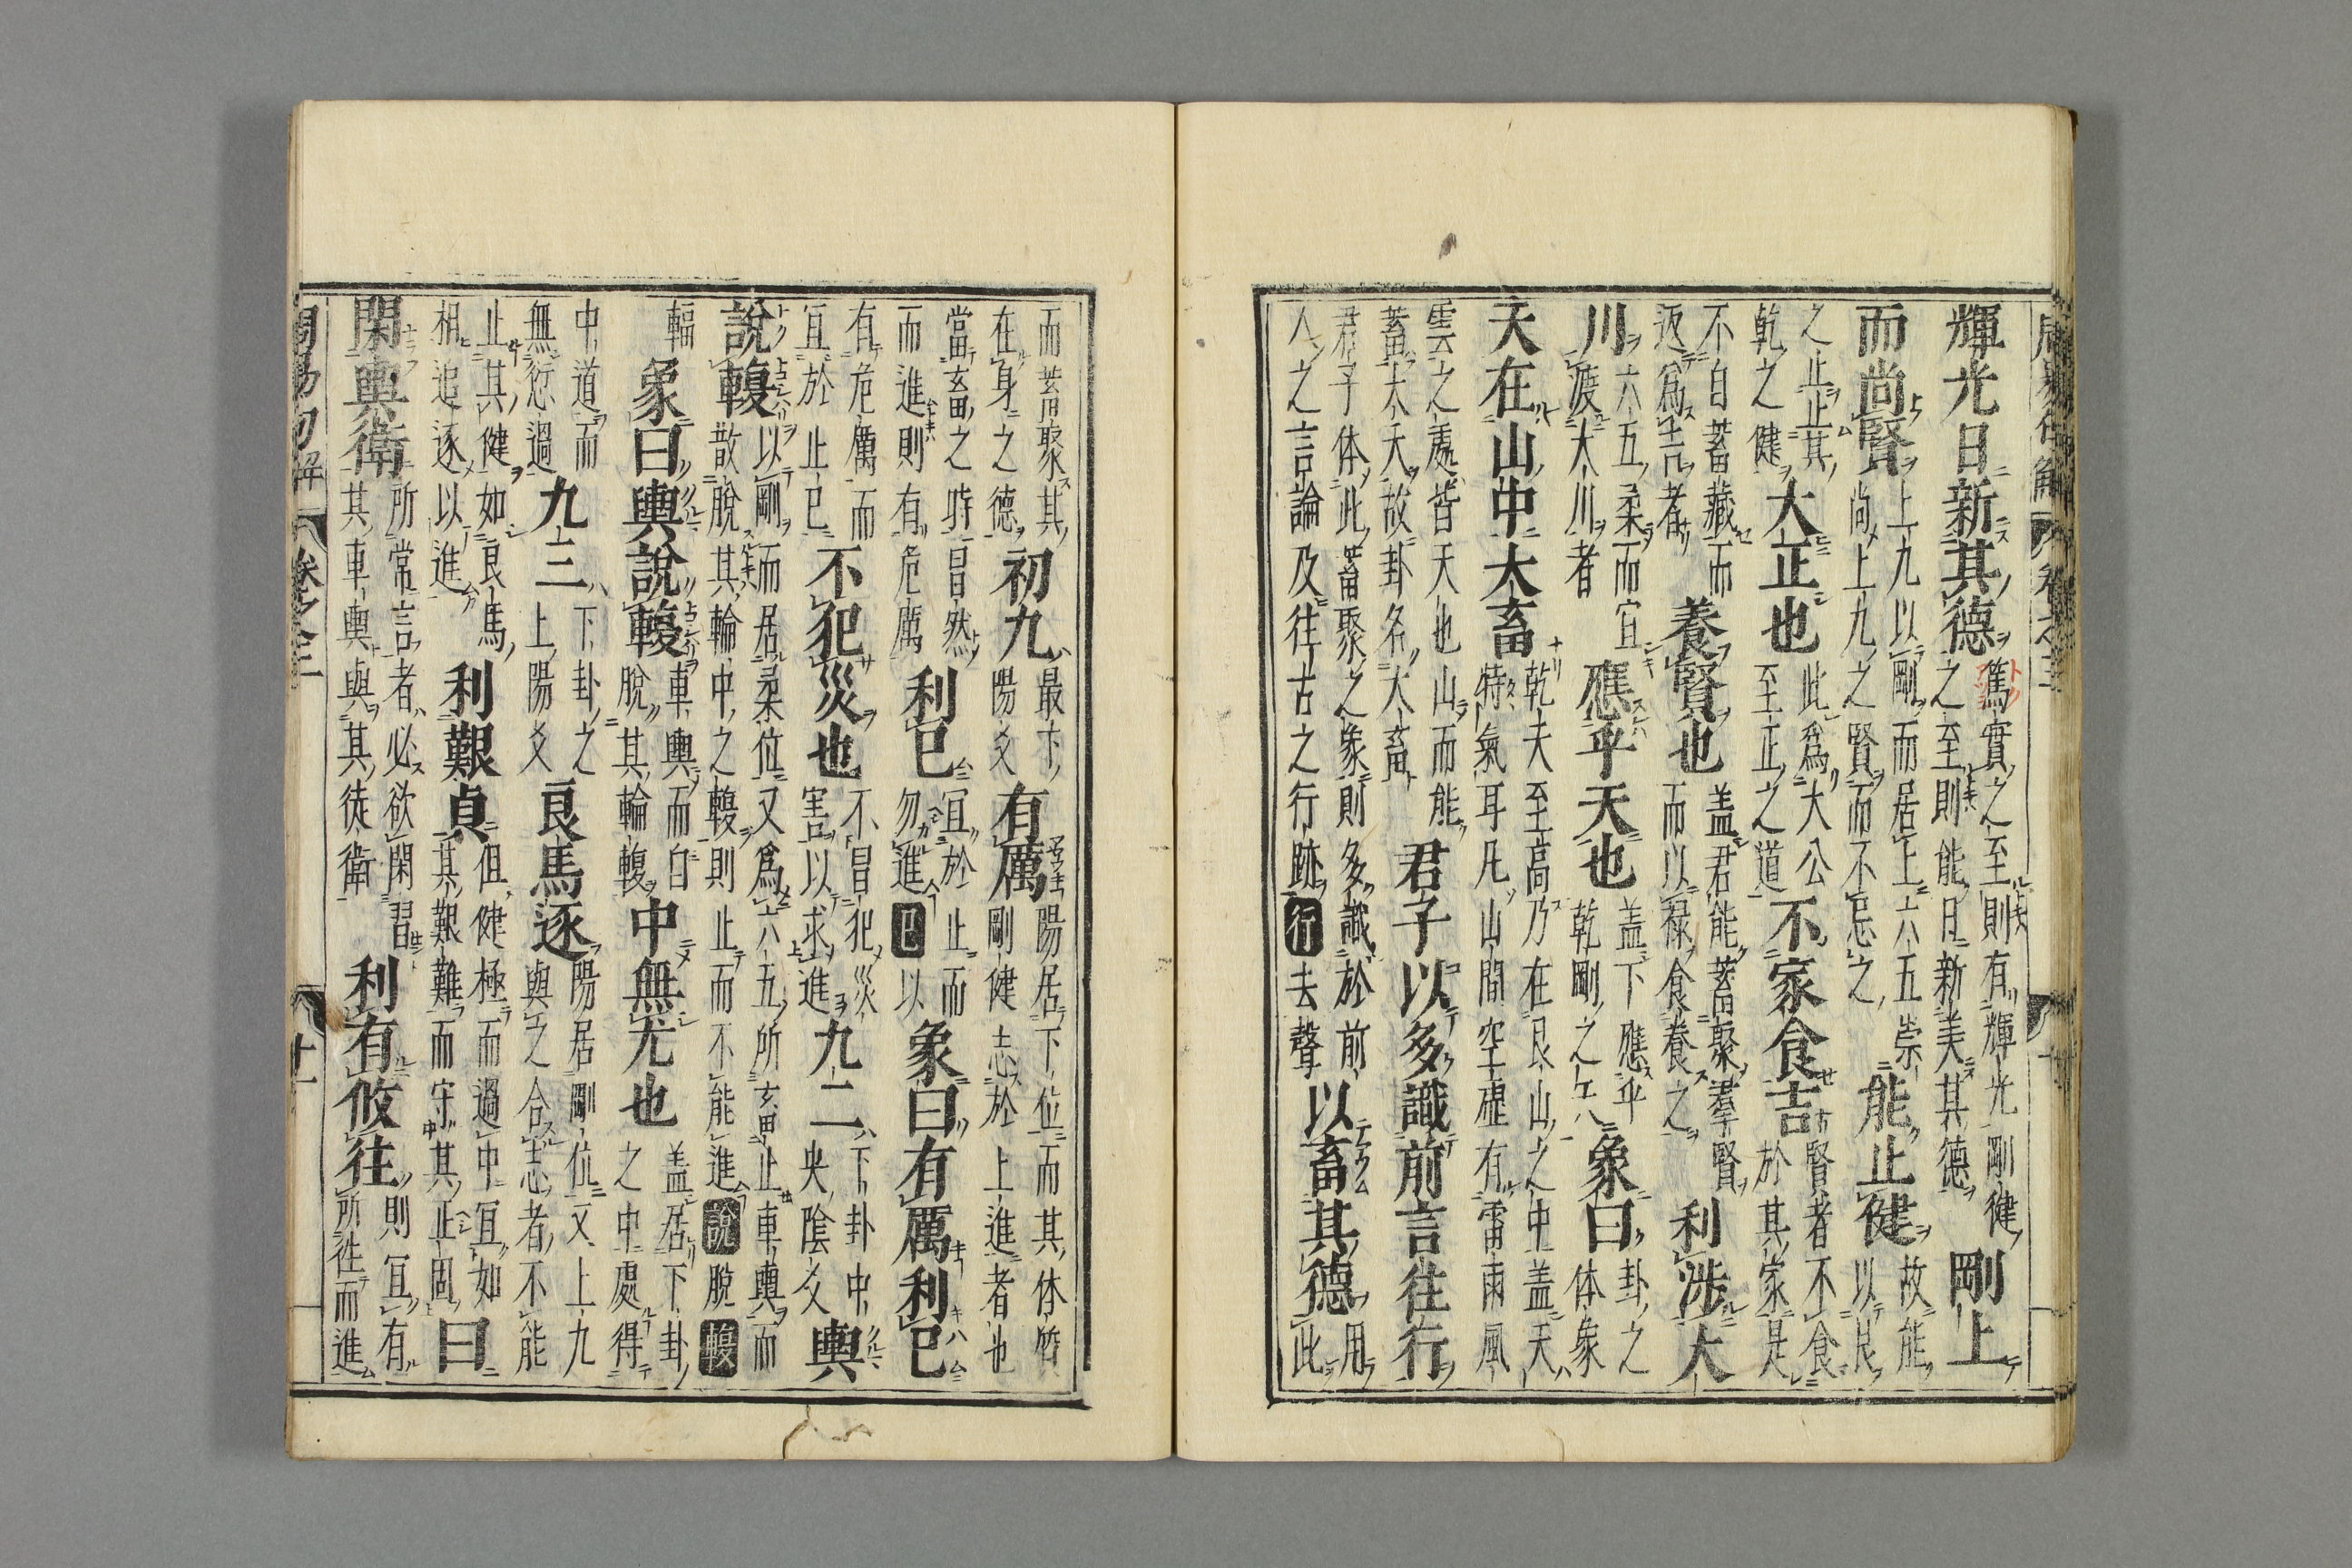 周易句解 卷之三 十
輝光日新其德 篤實之至則有輝光剛健
之至則能日新美其德 剛上
而尚賢 上九以剛而居上六五崇
尚上九之賢而不忘之 能止健 故能
以艮
之止止其
乾之健 大正也 此爲大公
至正之道 不家食吉 賢者不食
於其家是
不自蓄藏而
返爲吉者 養賢也 盖君能蓄聚羣賢
而以禄食養之 利涉大
川 六五柔而宜
渡大川者 應乎天也 盖下應乎
乾剛之爻 象曰 卦之
体象
天在山中大畜 乾夫至高乃在艮山之中盖天
特氣耳凡山間空礙有雷雨風
雲之處皆天也山而能
蓄大天故卦名大畜 君子以多識前言往行
君子体此蓄聚之象則多識於前
人之言論及往古之行跡 行 去聲 以畜其德 用
此
而蓄聚其
在身之德 初九 最下
陽爻 有厲 陽居下位而其体質
剛健志於上進者也
當畜之時冒然
而進則有危厲 利巳 宜於止而
勿進 巳 以 象曰有厲利巳
有危厲而
宜於止已 不犯災也 不冒犯災
害以求進 九二 下卦中
央陰爻 輿
說輹 以剛而居柔位又爲六五所畜止車輿而
散脫其輪中之輹則止而不能進 說 脫 輹
輻 象曰輿說輹 車輿而自
脫其輪輹 中無尤也 盖居下卦
之中處得
中道而
無愆過 九三 下卦之
上陽爻 良馬逐 陽居剛位又上九
與之合志者不能
止其健如良馬
相追逐以進 利艱貞 但健極而過中宜如
其艱難而守其正固 曰
閑輿衛 所常言者必欲閑習
其車輿與其徒衛 利有攸往 則宜有
所往而進
周易句解 卷之三 十一